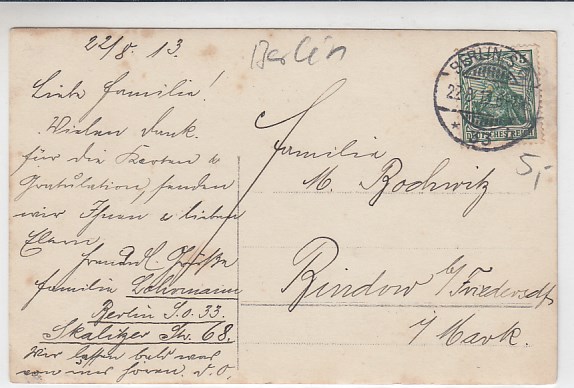 22/8. 13.
Berlin
Lieb Familie!
Vielen Dank.
für die Karten &
Gratulation, senden
wir Ihnen & lieben
Eltern
freundl. Grüße
Familie Lohrmann
Berlin S.O. 33.
Skalitzer Str. 68.
Wir lassen bald was
von uns hören. D.O.
BERLIN
DEUTSCHES REICH
5,-
Familie
M. Bochwitz
Bindow b/ Friedersdf
i/ Mark.